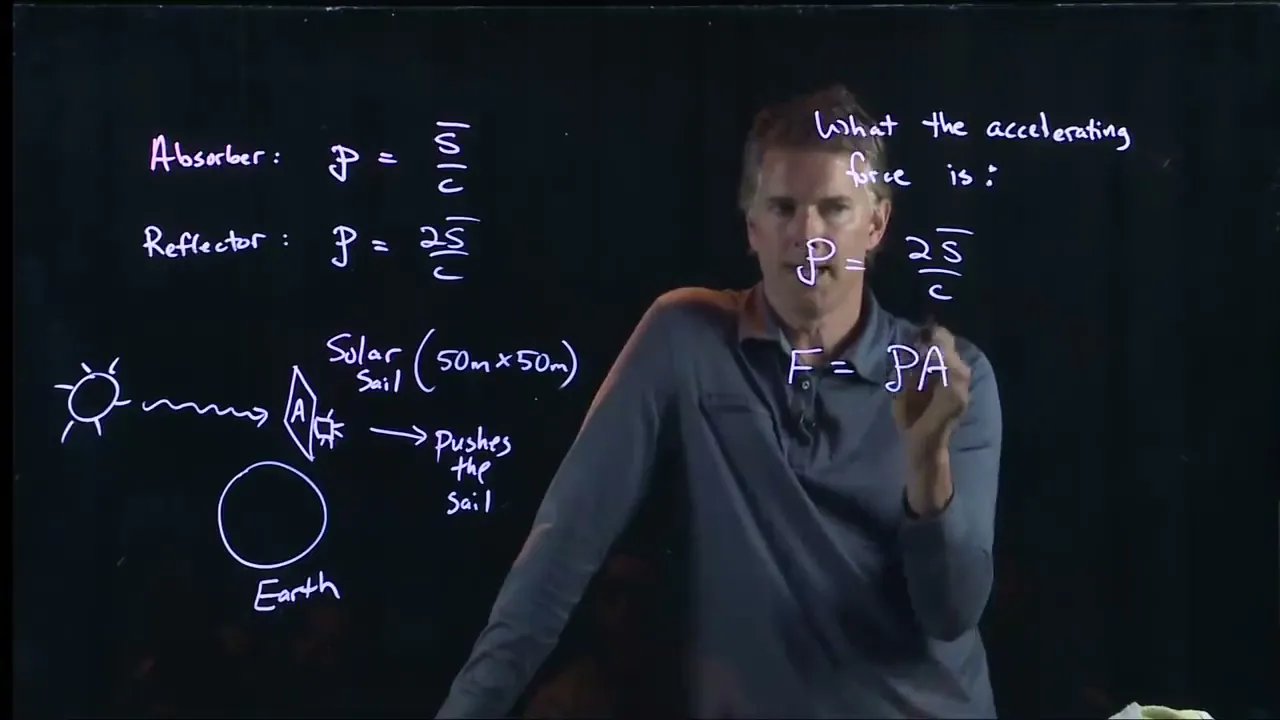 Absorber: P = S̅/c
Reflector: P = 2S̅/c
Solar Sail (50m × 50m)
A
→ pushes
the
sail
Earth
What the accelerating
force is:
P = 2S̅/c
F = PA